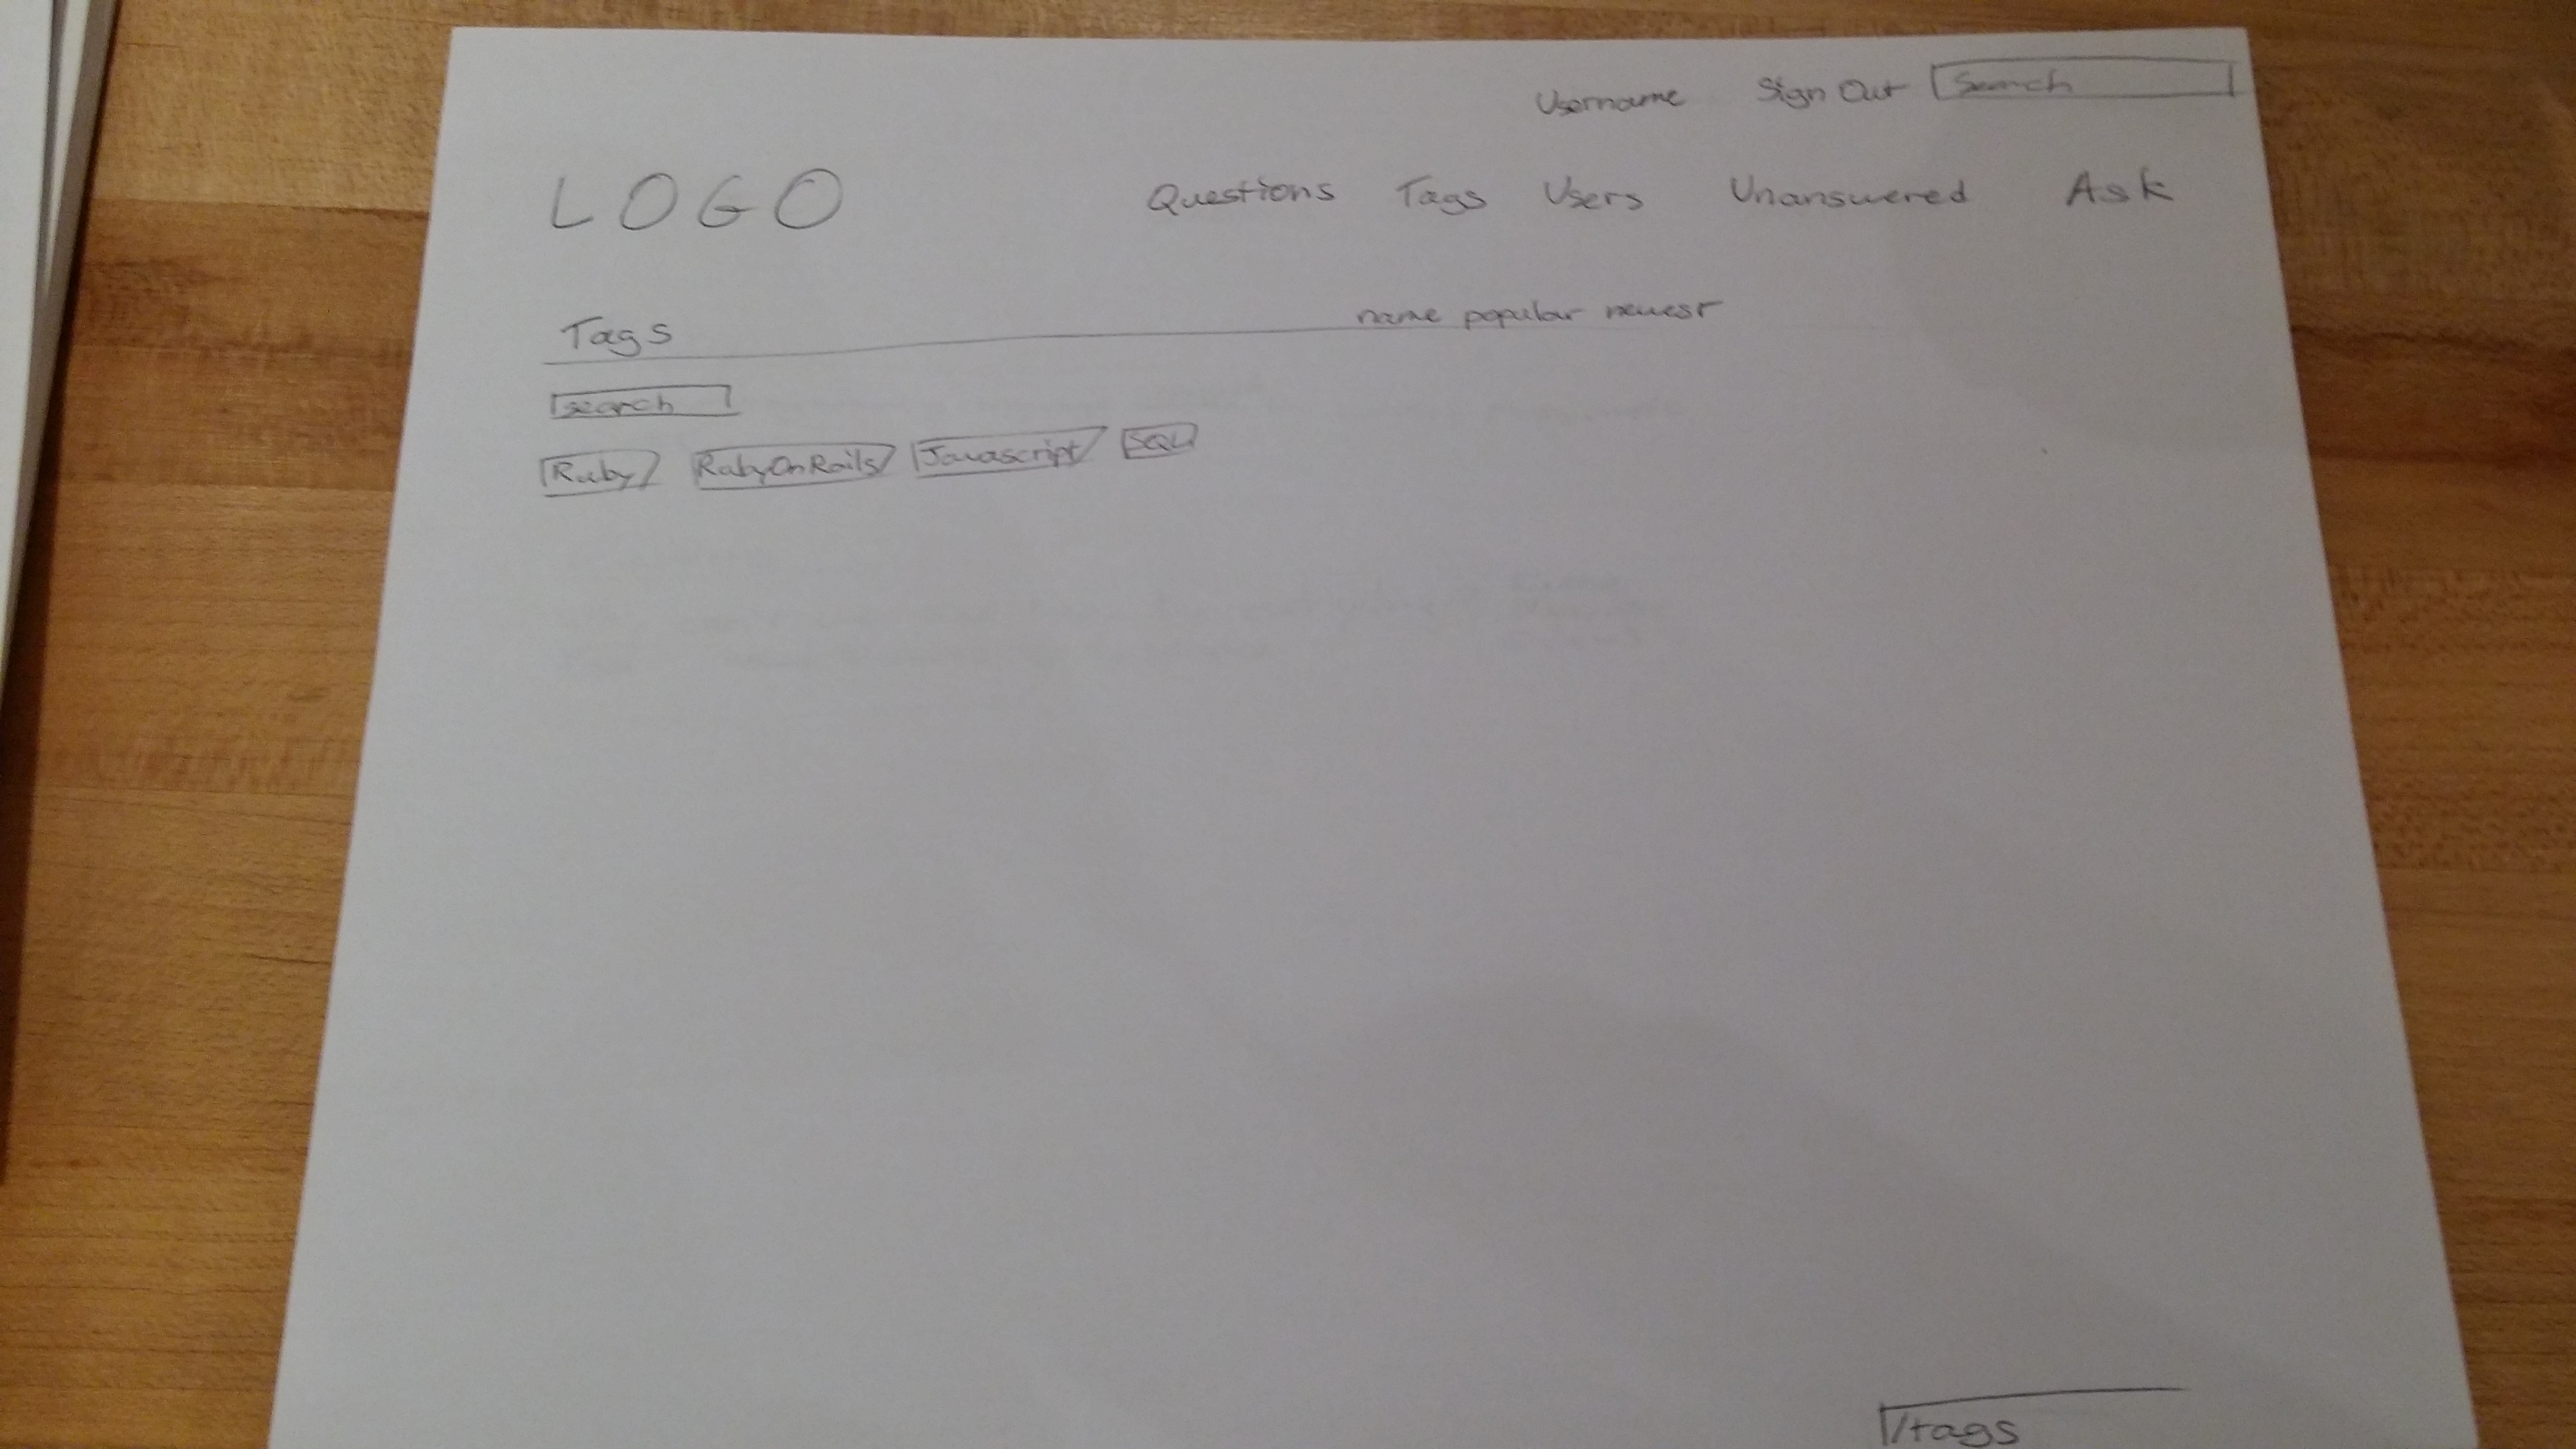 Username Sign Out Search
LOGO Questions Tags Users Unanswered Ask
Tags name popular newest
search
Ruby RubyOnRails Javascript SQL
/tags